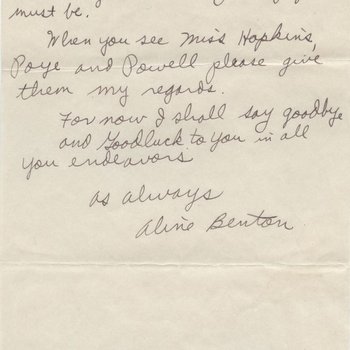 must be.
When you see Miss Hopkins,
Poye and Powell please give
them my regards.
For now I shall say goodbye
and Goodluck to You in all
you endeavors.
as always
Aline Benton